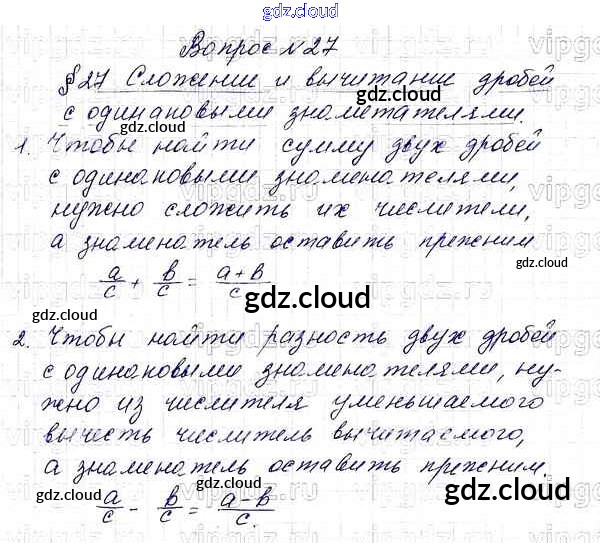 gdz.cloud
Вопрос №27
§27 Сложение и вычитание дробей
gdz.cloud
с одинаковыми знаметателями.
gdz.cloud
1. Чтобы найти сумму двух дробей
gdz.cloud
с одинаковыми знаменателями,
нужно сложить их числители,
а знаменатель оставить прежним
gdz.cloud
a/c + b/c = a+b/c
gdz.cloud
gdz.cloud
2. Чтобы найти разность двух дробей
gdz.cloud
с одинаковыми знаменателями, ну-
жно из числителя уменьшаемого
вычесть числитель вычитаемого,
gdz.cloud
а знаменатель оставить прежним.
gdz.cloud
gdz.cloud
a/c - b/c = a-b/c.
gdz.cloud